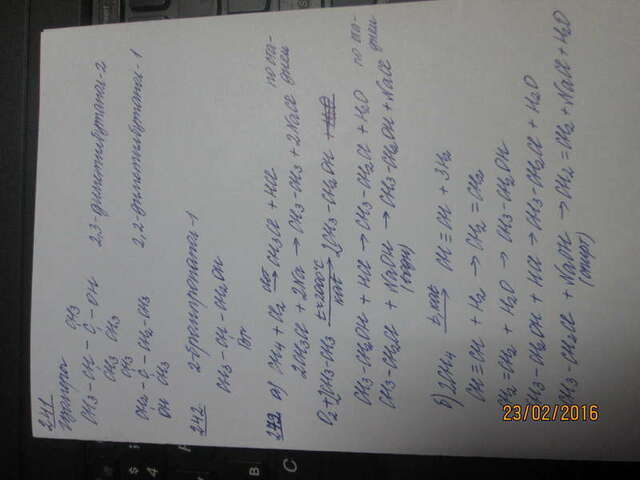 241
CH3
CH3 - CH - C - OH 2,3-диметилбутанол-2
CH3 CH3
CH3
CH2 - C - CH2 - CH3 2,2-диметилбутанол-1
OH CH3
242 2-бромпропанол-1
CH3 - CH - CH2OH
Br
243 а) CH4 + Cl2 свет→ CH3Cl + HCl
2CH3Cl + 2Na → CH3 - CH3 + 2NaCl
O2 + 2CH3 - CH3 t=200°C кат→ 2CH3 - CH2OH
CH3 - CH2OH + HCl → CH3 - CH2Cl + H2O
CH3 - CH2Cl + NaOH → CH3 - CH2OH + NaCl
(водн)
б) 2CH4 t, кат→ CH ≡ CH + 3H2
CH ≡ CH + H2 → CH2 = CH2
CH2 = CH2 + H2O → CH3 - CH2OH
CH3 - CH2OH + HCl → CH3 - CH2Cl + H2O
CH3 - CH2Cl + NaOH → CH2 = CH2 + NaCl + H2O
(спирт)
23/02/2016